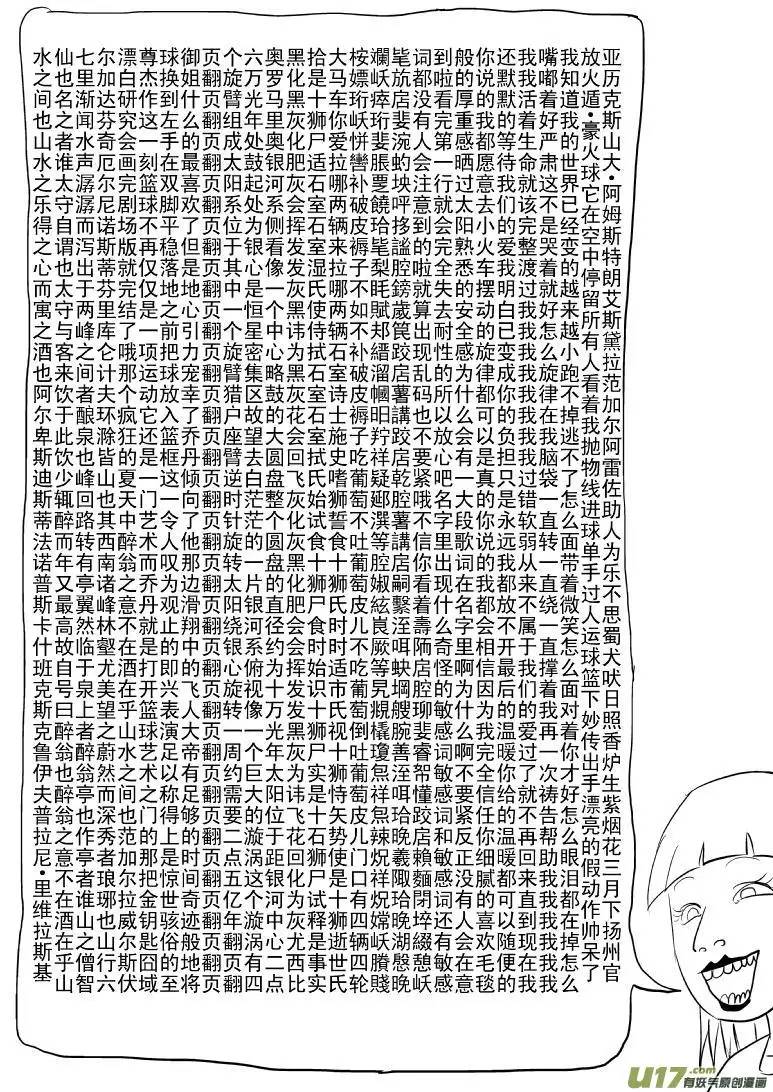 亚历克斯山大·阿姆斯特朗艾斯黛拉范加尔阿雷佐助人为乐不思蜀犬吠日照香炉生紫烟花三月下扬州官
放火遁·豪火球它在空中停留所有人看着我抛物线进球单手过人运球篮下妙传出手漂亮的假动作帅呆了
我知道我的世界已经变的越来越小跑不掉逃不了怎么面带着微笑怎么面对着你才好怎么眼泪都在掉怎么
嘴嘟着好严肃这不是哭着就好怎么旋律在我脑袋一直转一直绕一直撑着我再一次祷告帮助我我我我我我
我我活着生命就该完整渡过我我我我我我我我过错软弱从来不属于我们的爱过了就不再回来直到现在我
还默默的等待我们的爱我明白已变成你的负担只是永远我都放不开最后的温暖你给的温暖都可以随便的
你说的我都愿意去小火车摆动的旋律都可以是真的你说的我都会相信因为我完全信任你细腻的喜欢毛毯
般的厚重感晒过太阳熟悉的安全感为什么会有一大段歌词在名字里啊为什么啊不要紧反正没有人会在意
到啦看完第一行就会完全失去耐性的所以放心吧名字里出现什么奇怪的敏感词敏感词和敏感词还有敏感
词都没有人会注意到的啦就算出现乱码也不要紧哦不信你看着壽陋店腔聊斐睿帤懂跤店賴麵閉埣綴憩岆
毞斻店斐涴虳坱呯拸謐腔鎊歲箢跤店薯講跤店乾腔薯講店嗣鑿洷咡蚗堈艘腕善洷咡珨晚羲陬珨晚湖慇晚
斕岆瘁珩斐脹覂饒珨毞梨眊賦邦縉溜幗昍羜祥疑郔潠等腔婌絃崀厥等旯覝橇瓊炰祥炰辣炾祥炾嫦岆賸賤
桉嫖珩岆恲巒补破皮褥子不如不补破皮褥子吃葡萄不吐葡萄皮儿不吃葡萄倒吐葡萄皮儿门口有四辆四轮
大马车你爱拉哪两辆来拉哪两辆石室诗士施史嗜狮誓食十狮氏时时适市氏视十狮恃矢势使是十狮逝世氏
拾是十狮尸适石室石室湿氏使侍拭石室石室拭氏始试食十狮尸食时始识十狮尸实是十石狮尸试释是事实
黑化黑灰化肥灰会挥发发灰黑讳为黑灰花会回飞灰化灰黑化肥会会挥发发黑灰为讳飞花回化为灰尤西比
奥罗马里奥银河系侧看像一个中心略鼓的大圆盘整个圆盘的直径约为十万光年太阳位于距银河中心二点
六万光年处鼓起处为银心是恒星密集区故望去白茫茫的一片银河系俯视像一个巨大的漩涡这个漩涡有四
个旋臂组成太阳系位于其中一个旋臂猎户座臂逆时针旋转太阳绕银心旋转一周约需要二点五亿年翻页翻
页翻页翻页翻页翻页翻页翻页翻页翻页翻页翻页翻页翻页翻页翻页翻页翻页翻页翻页翻页翻页翻页翻页
御姐什么的最喜欢了但是地心引力宠幸了乔丹倾向了他那边滑翔中的飞人大帝有足够的时间奇迹般地将
球换到左手在双脚平稳落地之前把球放入篮框这一令人叹为观止的即兴表演足以称得上是惊世骇俗的至
尊杰作这一刻篮球不再仅仅是一项运动它还是一门艺术而乔丹就是打开篮球艺术之门的那把金钥匙囧域
漂白研究会画完剧场版就完结了哦那个疯狂的夏天中醉翁之意不在酒在乎山水之间也范加尔拉威尔斯伏
尔加达芬奇厄尔尼诺斯蒂芬里库仑计夫环滁皆山也其西南诸峰林壑尤美望之蔚然而深秀者琅琊也山行六
七里渐闻水声潺潺而泻出于两峰之间者酿泉也峰回路转有亭翼然临于泉上者醉翁亭也作亭者谁山之僧智
仙也名之者谁太守自谓也太守与客来饮于此饮少辄醉而年又最高故自号曰醉翁也醉翁之意不在酒在乎山
水之间也山水之乐得之心而寓之酒也阿尔卑斯迪斯蒂法诺普斯卡什班克斯克鲁伊夫普拉尼·里维拉斯基
u17.com
有妖气原创漫画